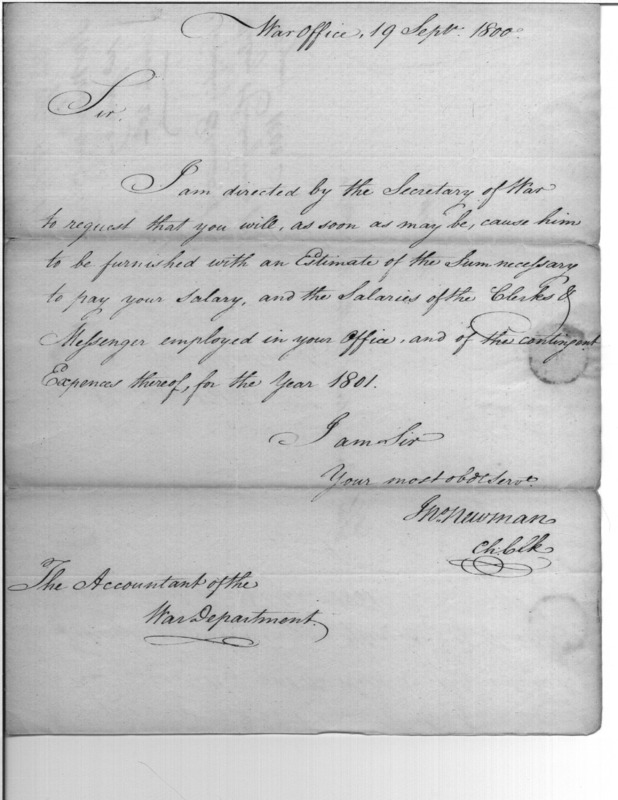 War Office, 19 Septr. 1800.
Sir.
I am directed by the Secretary of War
to request that you will, as soon as may be, cause him
to be furnished with an Estimate of the Sum necessary
to pay your Salary, and the Salaries of the Clerks &
Messenger employed in your Office, and of the contingent
Expences thereof, for the Year 1801.
I am Sir
Your most obdt Servt.
Jno. Newman
Ch. Clk
The Accountant of the
War Department.